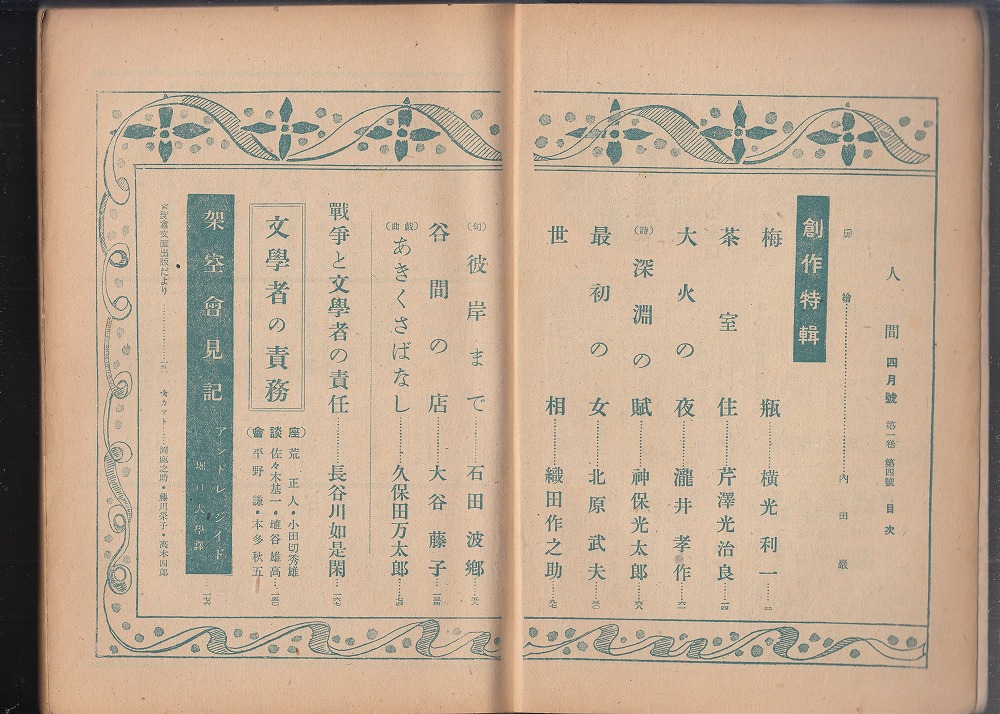 人間 四月號 第一卷 第四號 目次
扉繪……内田巖
創作特輯
梅瓶……横光利一…二
茶室……芹澤光治良…一四
大火の夜……瀧井孝作…六一
（詩）深淵の賦……神保光太郎…六八
最初の女……北原武夫…
世相……織田作之助…
（句）彼岸まで……石田波郷…
谷間の店……大谷藤子…
（戯曲）あきくさばなし……久保田万太郎…七四
戰爭と文學者の責任……長谷川如是閑…
文學者の責務
（座談會）
荒正人・小田切秀雄
佐々木基一・埴谷雄高
平野謙・本多秋五
架空會見記 アンドレ・ジイド 堀口大學譯…
☆鎌倉文庫出版だより…… ☆カット……・藤川榮子・高木四郎